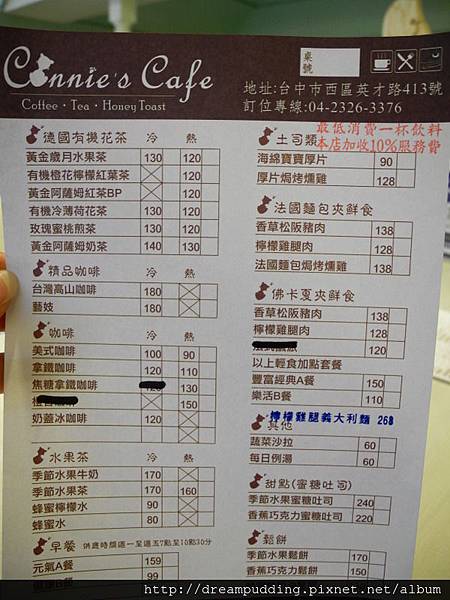 Connie's Cafe
Coffee · Tea · Honey Toast
桌號
地址:台中市西區英才路413號
訂位專線:04-2326-3376
最低消費一杯飲料
本店加收10%服務費
德國有機花茶 冷 熱
黃金歲月水果茶 130 120
有機橙花檸檬紅葉茶 120
黃金阿薩姆紅茶BP 120
有機冷薄荷花茶 130 120
玫瑰蜜桃煎茶 130 120
黃金阿薩姆奶茶 140 130
精品咖啡 冷 熱
台灣高山咖啡 180
藝妓 180
咖啡 冷 熱
美式咖啡 100 90
拿鐵咖啡 120 110
焦糖拿鐵咖啡 130
150
奶蓋冰咖啡 120
水果茶 冷 熱
季節水果牛奶 170
季節水果茶 170 160
蜂蜜檸檬水 90
蜂蜜水 80
早餐 供應時間週一至週五7點至10點30分
元氣A餐 159
99
土司類
海綿寶寶厚片 90
厚片焗烤燻雞 128
法國麵包夾鮮食
香草松阪豬肉 138
檸檬雞腿肉 128
法國麵包焗烤燻雞 138
佛卡夏夾鮮食
香草松阪豬肉 138
檸檬雞腿肉 128
120
以上輕食加點套餐
豐富經典A餐 150
樂活B餐 110
檸檬雞腿義大利麵 268
其他
蔬菜沙拉 60
每日例湯 60
甜點(蜜糖吐司)
季節水果蜜糖吐司 240
香蕉巧克力蜜糖吐司 220
鬆餅
季節水果鬆餅 170
香蕉巧克力鬆餅 150
http://dreampudding.pixnet.net/album